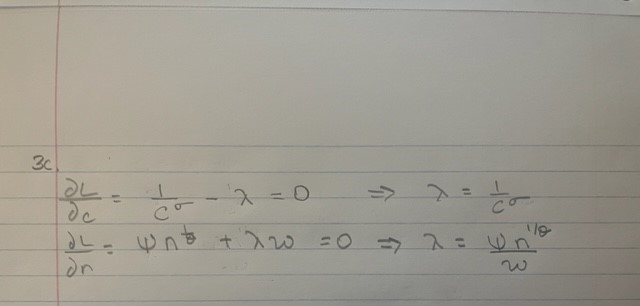 3c.
∂L/∂c = 1/c^σ - λ = 0 ⇒ λ = 1/c^σ
∂L/∂n = ψn^1/θ + λw = 0 ⇒ λ = ψn^1/θ/w